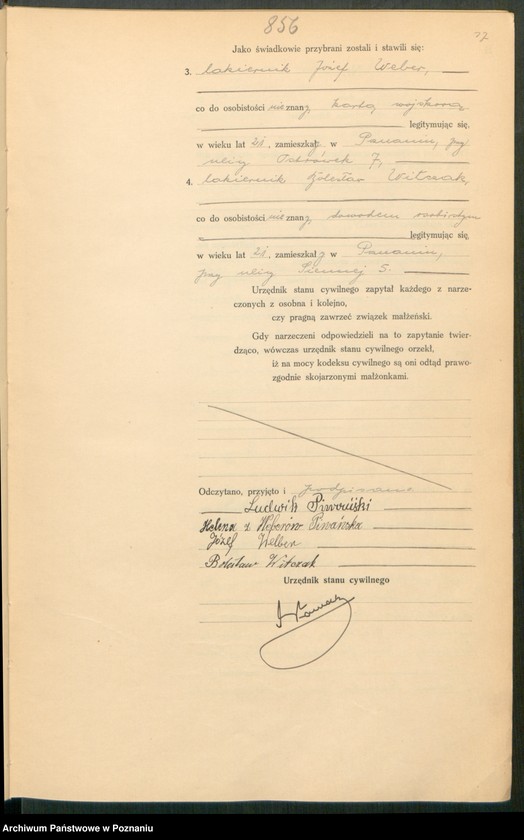 856
77
Jako świadkowie przybrani zostali i stawili się:
3. lakiernik Józef Weber,
co do osobistości nie znany, kartą wojskową
legitymując się,
w wieku lat 28, zamieszkały w Poznaniu, przy
ulicy Ostrówek 7,
4. lakiernik Bolesław Witczak,
co do osobistości nie znany, dowodem osobistym
legitymując się,
w wieku lat 28, zamieszkały w Poznaniu,
przy ulicy Siennej 5.
Urzędnik stanu cywilnego zapytał każdego z narze-
czonych z osobna i kolejno,
czy pragną zawrzeć związek małżeński.
Gdy narzeczeni odpowiedzieli na to zapytanie twier-
dząco, wówczas urzędnik stanu cywilnego orzekł,
iż na mocy kodeksu cywilnego są oni odtąd prawo-
zgodnie skojarzonymi małżonkami.
Odczytano, przyjęto i podpisano
Ludwik
Helena z Weberów
Józef Weber
Bolesław Witczak
Urzędnik stanu cywilnego
Archiwum Państwowe w Poznaniu